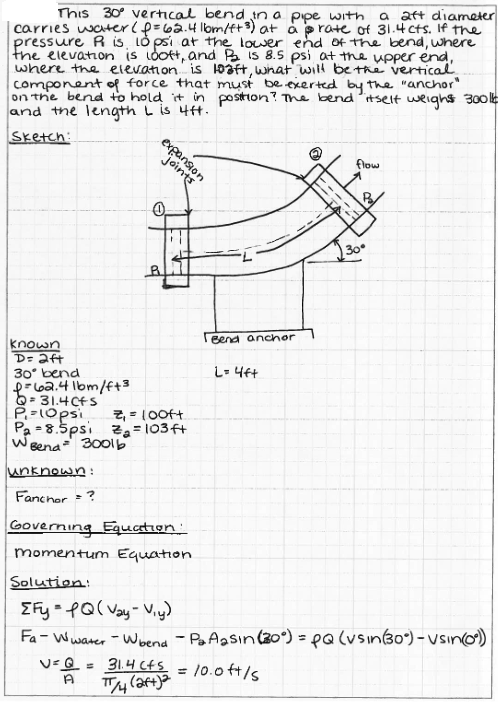 This 30° vertical bend in a pipe with a 2ft diameter
carries water (ρ=62.4 lbm/ft³) at a rate of 31.4cfs. If the
pressure P₁ is 10psi at the lower end of the bend, where
the elevation is 100ft, and P₂ is 8.5 psi at the upper end,
where the elevation is 103ft, what will be the vertical
component of force that must be exerted by the "anchor"
on the bend to hold it in position? The bend itself weighs 300lb
and the length L is 4ft.
Sketch:
expansion
joints
②
flow
①
P₂
P₁
L
30°
Bend anchor
Known
D= 2ft
30° bend
L= 4ft
ρ=62.4 lbm/ft³
Q= 31.4cfs
P₁=10psi Z₁ = 100ft
P₂ = 8.5psi Z₂ = 103ft
W_Bend = 300lb
Unknown:
Fanchor = ?
Governing Equation:
Momentum Equation
Solution:
ΣFy = ρQ(V₂y - V₁y)
Fa - Wwater - Wbend - P₂A₂sin(30°) = ρQ(vsin(30°) - vsin(0°))
V= Q/A = 31.4 cfs / π/4 (2ft)² = 10.0 ft/s